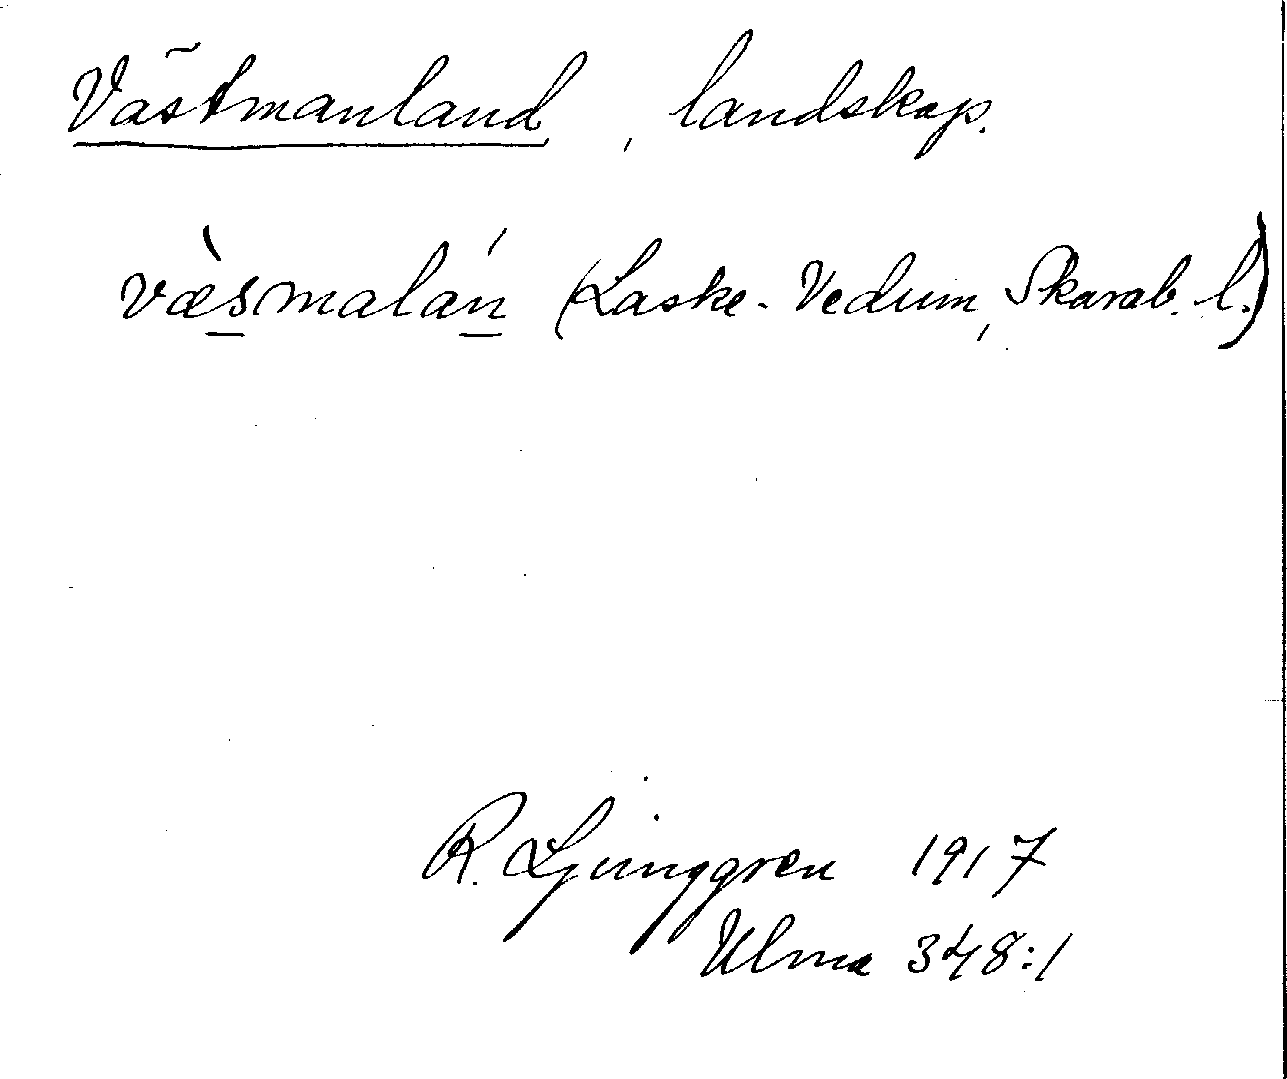 Västmanland, landskap.
væ̀smalán (Laske-Vedum, Skarab. l.)
R. Ljunggren 1917
Ulma 348:1